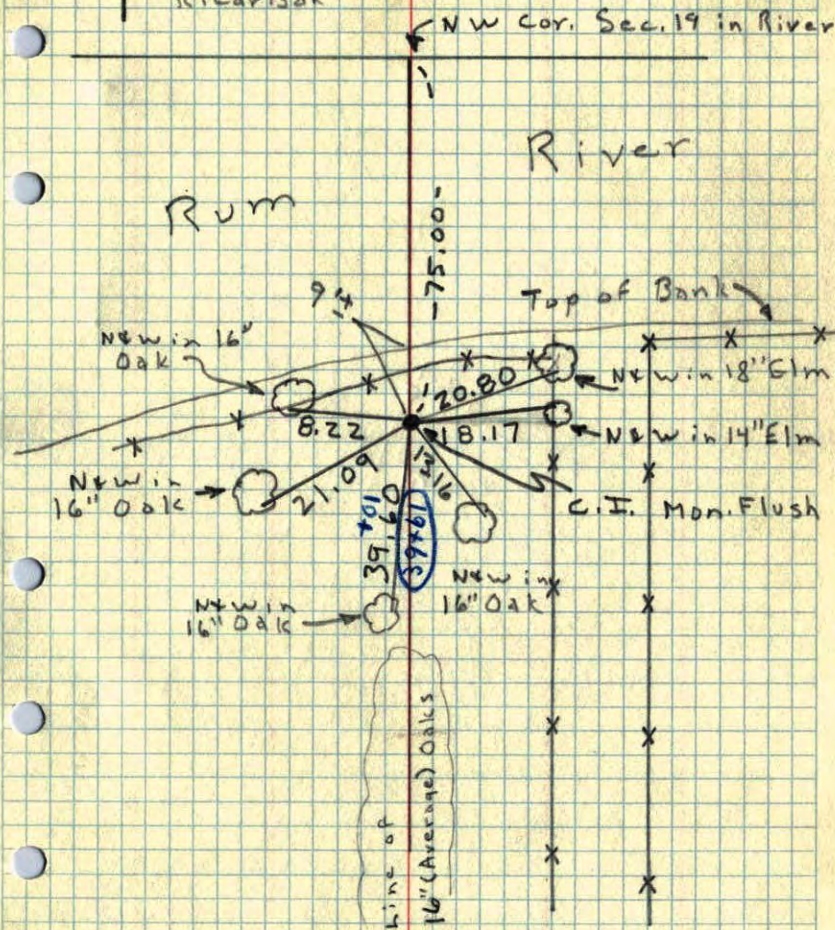 NW Cor. Sec. 19 in River
River
Rum
-75.00-
9'±
Top of Bank
N&W in 16"
Oak
20.80
N&W in 18" Elm
8.22
18.17
N&W in 14" Elm
N&W in
16" Oak
21.09
13.16
C.I. Mon. Flush
39.60
N&W in
16" Oak
N&W in
16" Oak
Line of
16" (Average) Oaks